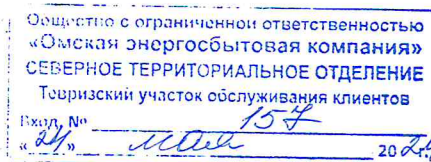 Общество с ограниченной ответственностью
«Омская энергосбытовая компания»
СЕВЕРНОЕ ТЕРРИТОРИАЛЬНОЕ ОТДЕЛЕНИЕ
Тевризский участок обслуживания клиентов
Вход. № 157
«24» мая 20